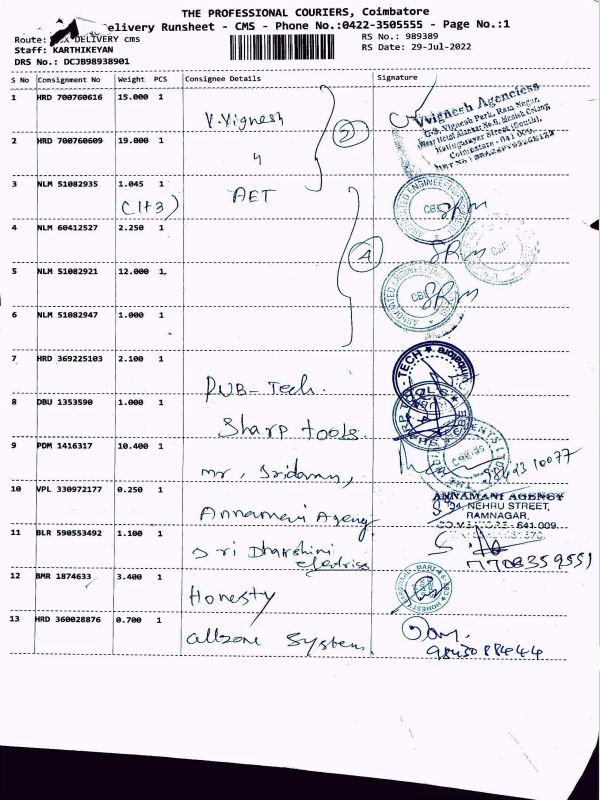 THE PROFESSIONAL COURIERS, Coimbatore
elivery Runsheet - CMS - Phone No.:0422-3505555 - Page No.:1
Route: DELIVERY cms
RS No.: 989389
Staff: KARTHIKEYAN
RS Date: 29-Jul-2022
DRS No.: DCJB98938901
S No Consignment No Weight PCS Consignee Details Signature
1 HRD 700760616 15.000 1 V.Vignesh
2
Vignesh Agencies
G-9, Vignesh Park, Ram Nagar,
Coimbatore - 641 009.
2 HRD 700760609 19.000 1 "
3 NLM 51082935 1.045 1 AET
(1+3)
SRm
4 NLM 60412527 2.250 1
4
SRm
5 NLM 51082921 12.000 1
SRm
6 NLM 51082947 1.000 1
7 HRD 369225103 2.100 1 PUB-Tech.
8 DBU 1353590 1.000 1 Sharp tools.
9 PDM 1416317 10.400 1 mr, Sridaran,
98493 10077
10 VPL 330972177 0.250 1 Annamani Agency
ANNAMANI AGENCY
34, NEHRU STREET,
RAMNAGAR,
COIMBATORE - 641 009.
11 BLR 590553492 1.100 1 Sri Dharshini
electrics
7708359551
12 BMR 1874633 3.400 1 Honesty
13 HRD 360028876 0.700 1 allzone System.
98430 88444